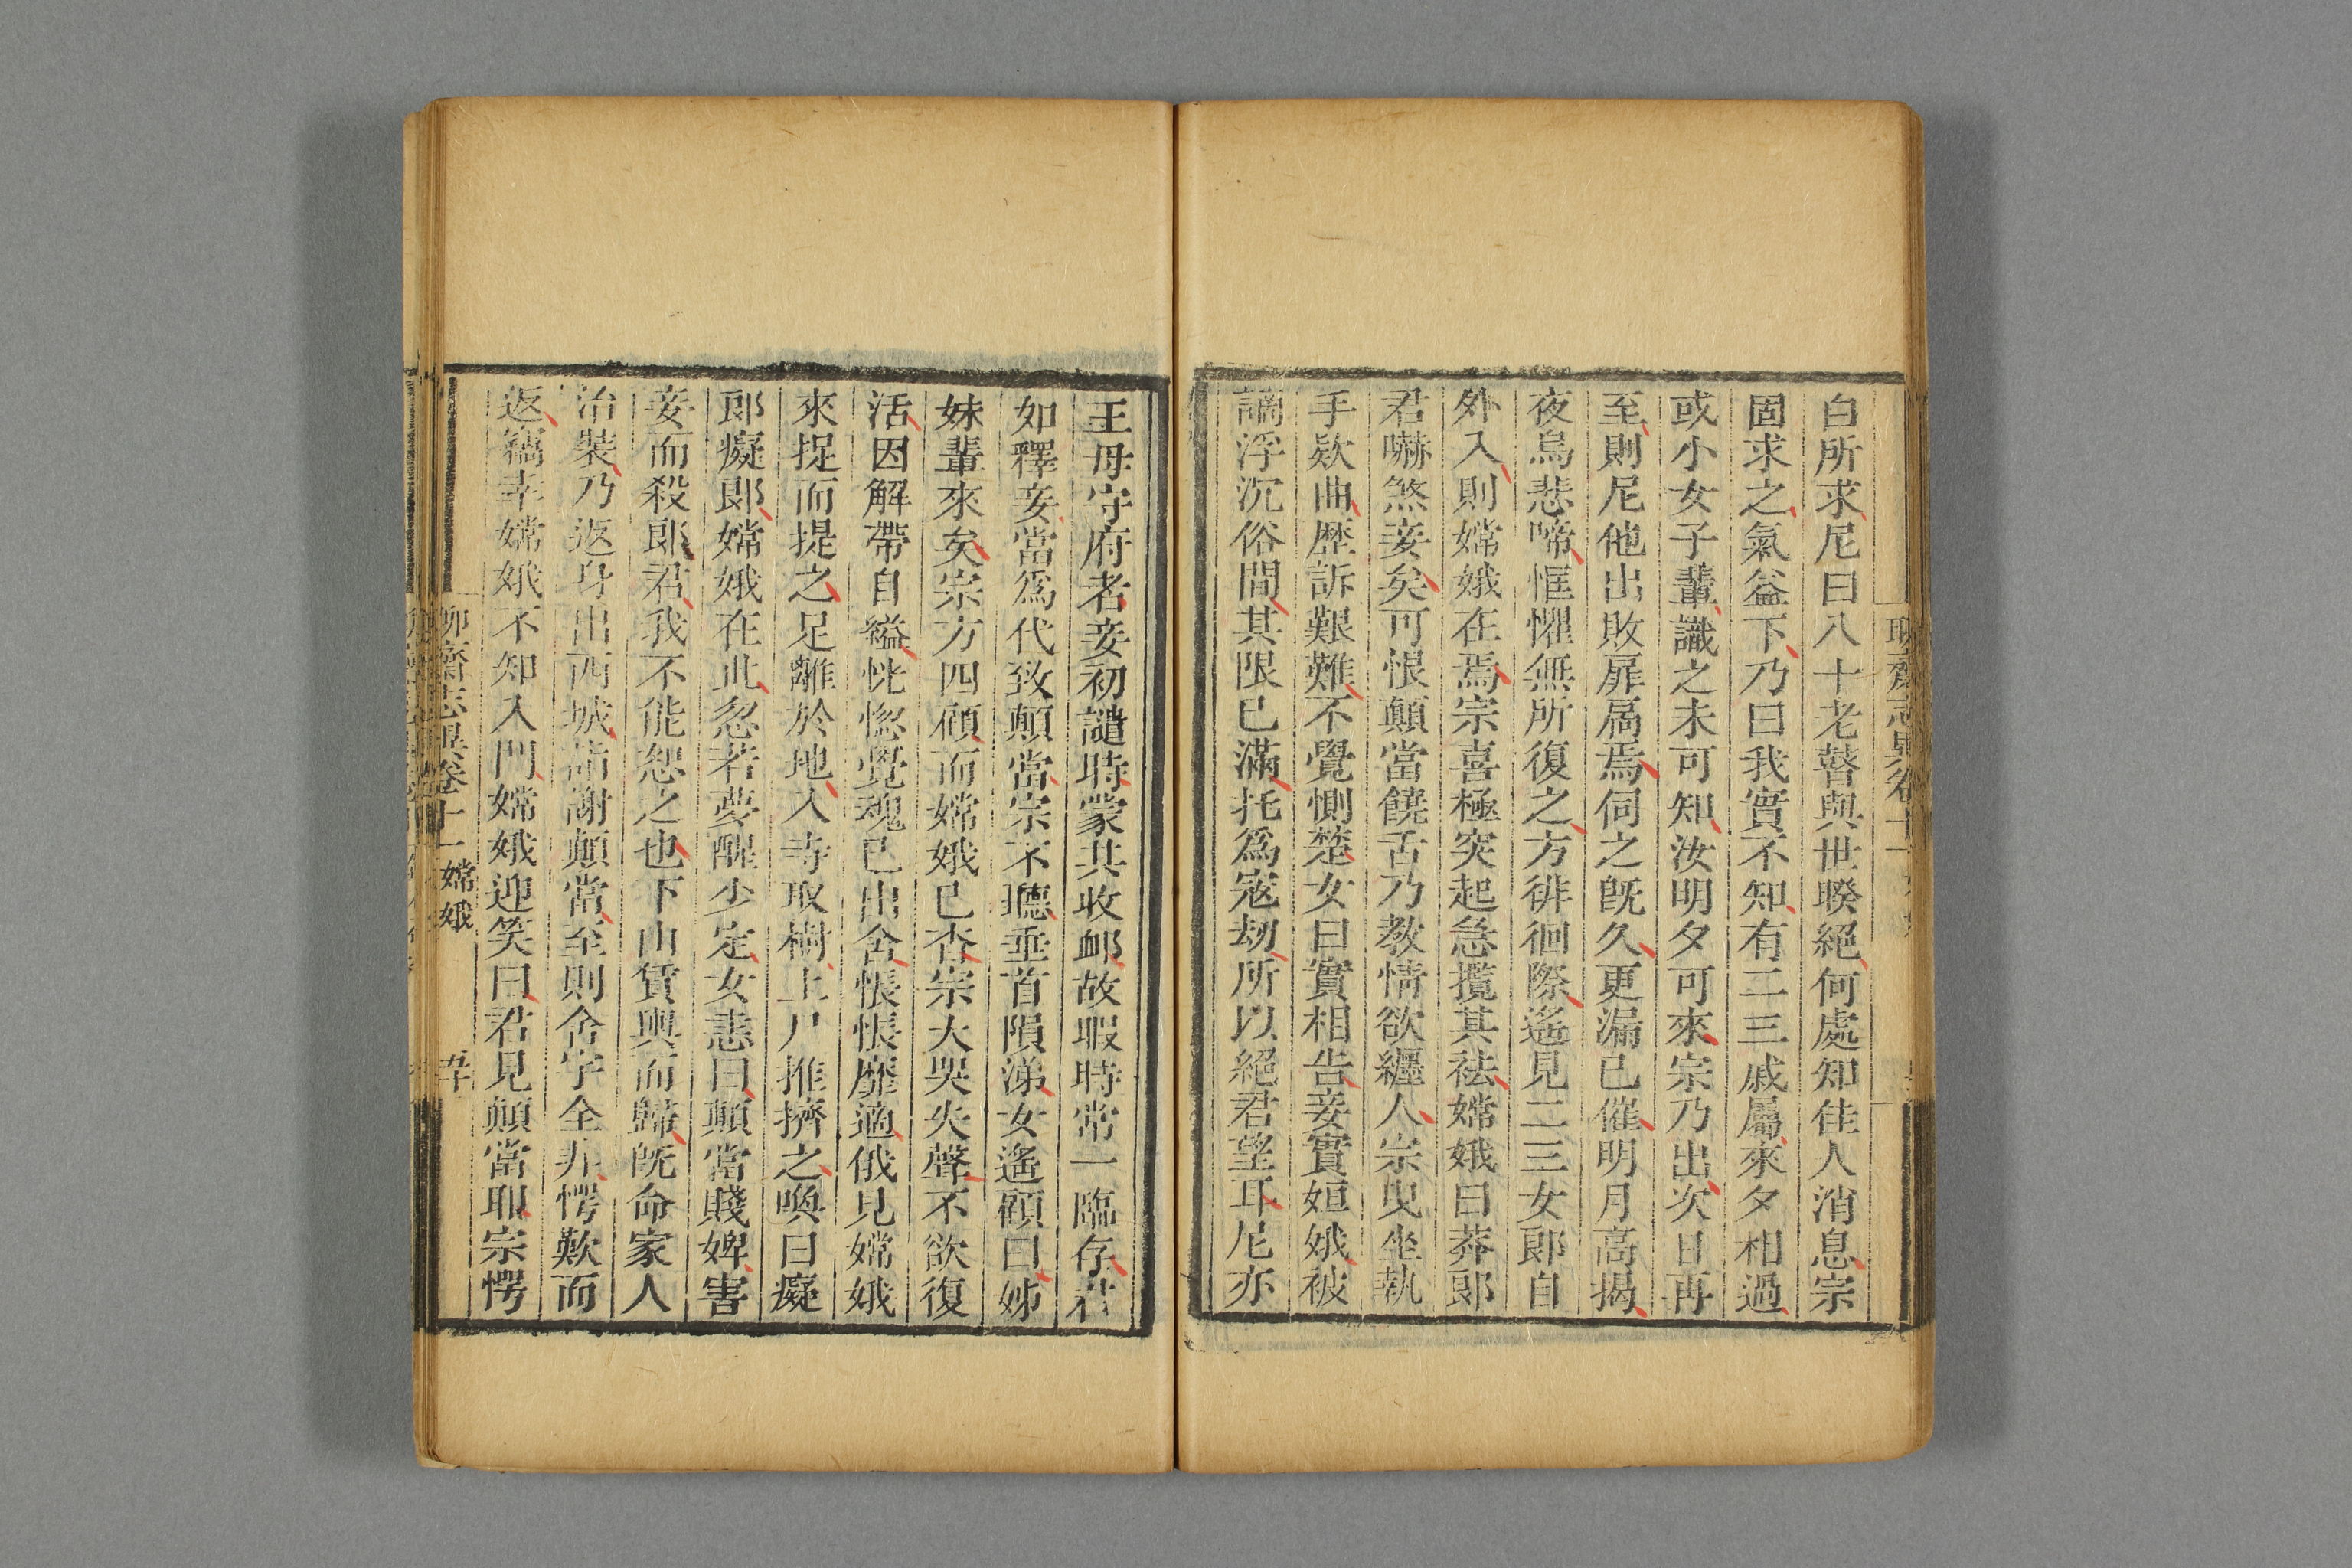 白所求尼曰八十老瞽與世睽絕何處知佳人消息宗
固求之氣益下乃曰我實不知有二三戚屬來夕相過
或小女子輩識之未可知汝明夕可來宗乃出次日再
至則尼他出敗扉扃焉伺之旣久更漏已催明月高揭
夜烏悲啼恇懼無所復之方徘徊際遙見二三女郞自
外入則嫦娥在焉宗喜極突起急攬其袪嫦娥曰莽郞
君嚇煞妾矣可恨顛當饒舌乃教情欲纏人宗曳坐執
手欵曲歷訴艱難不覺惻楚女曰實相告妾實姮娥被
謫浮沉俗間其限已滿托爲寇劫所以絕君望耳尼亦
王母守府者妾初譴時蒙其收邮故暇時常一臨存君
如釋妾當爲代致顛當宗不聽垂首隕涕女遙顧曰姊
妹輩來矣宗方四顧而嫦娥已杳宗大哭失聲不欲復
活因解帶自縊恍惚覺魂已出舍悵悵靡適俄見嫦娥
來捉而提之足離於地入寺取樹上尸推擠之喚曰癡
郞癡郞嫦娥在此忽若夢醒少定女恚曰顛當賤婢害
妾而殺郞君我不能恕之也下山賃輿而歸旣命家人
治裝乃返身出西城詣謝顛當至則舍宇全非愕歎而
返竊幸嫦娥不知入門嫦娥迎笑曰君見顛當耶宗愕
聊齋志異卷十一 嫦娥 五十